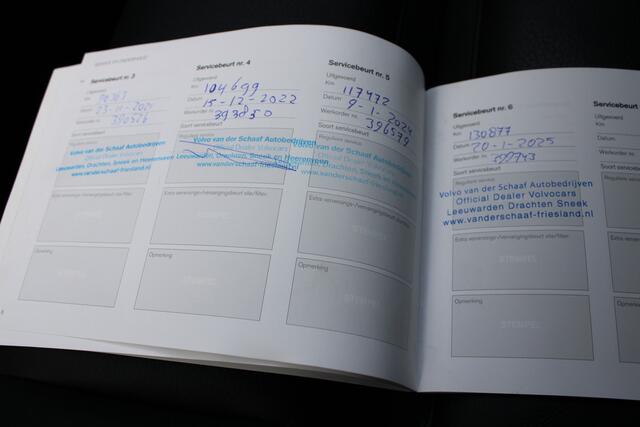 SERVICE EN ONDERHOUD
Servicebeurt nr. 3
Uitgevoerd
Km
Datum 23-11-2021
Werkorder nr. 390526
Soort servicebeurt
Reguliere service
Volvo van der Schaaf Autobedrijven
Official Dealer Volvocars
Leeuwarden, Drachten, Sneek en Heerenveen
www.vanderschaaf-friesland.nl
Extra verversings-/vervangingsbeurt olie/filter:
Opmerking
Servicebeurt nr. 4
Uitgevoerd
Km 104699
Datum 15-12-2022
Werkorder nr. 393850
Soort servicebeurt
Reguliere service
Volvo van der Schaaf Autobedrijven
Official Dealer Volvocars
Leeuwarden, Drachten, Sneek en Heerenveen
www.vanderschaaf-friesland.nl
Extra verversings-/vervangingsbeurt olie/filter:
STEMPEL
Opmerking
STEMPEL
Servicebeurt nr. 5
Uitgevoerd
Km 117472
Datum 9-1-2024
Werkorder nr. 396579
Soort servicebeurt
Reguliere service
van der Schaaf Autobedrijven
Official Dealer Volvocars
Drachten, Sneek en Heerenveen
www.vanderschaaf-friesland.nl
Extra verversings-/vervangingsbeurt olie/filter:
STEMPEL
Opmerking
STEMPEL
Servicebeurt nr. 6
Uitgevoerd
Km 130877
Datum 20-1-2025
Werkorder nr.
Soort servicebeurt
Reguliere service
Volvo van der Schaaf Autobedrijven
Official Dealer Volvocars
Leeuwarden Drachten Sneek
www.vanderschaaf-friesland.nl
Extra verversings-/vervangingsbeurt olie/filter:
STEMPEL
Opmerking
STEMPEL
Servicebeurt
Uitgevoerd
Km
Datum
Werkorder nr.
Soort servicebeurt
Reguliere service
Extra
Opmerking